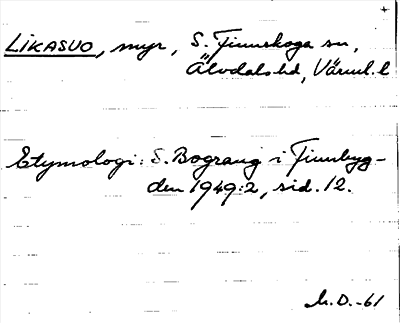 +
LIKASUO, myr, S. Finnskoga sn,
Älvdals hd, Värml. l
Etymologi: S. Bograng i Finnbyg-
den 1949:2, sid. 12.
M.D.-61